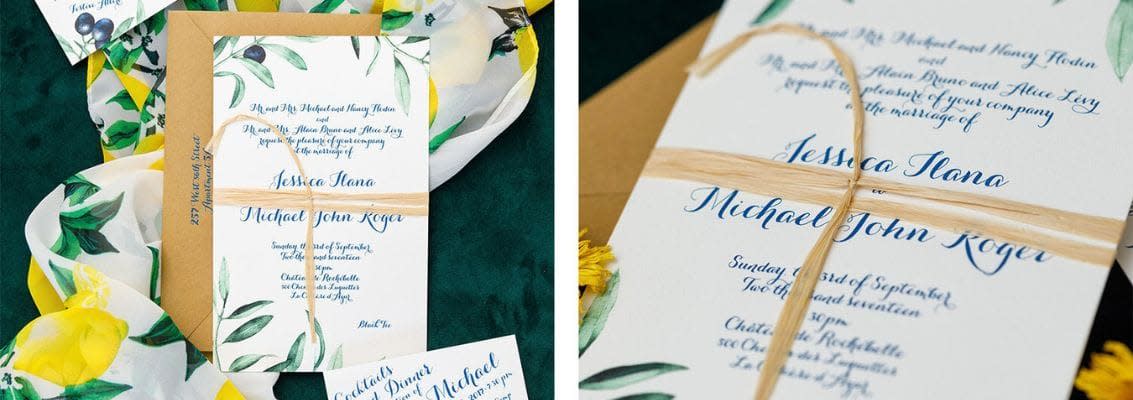 Mr. and Mrs. Michael and Nancy Flodin
Mr. and Mrs. Alain Bruno and Alice Lévy
request the pleasure of your company
at the marriage of
Jessica Ilana
Michael John Roger
Sunday 3rd of September
Two thousand seventeen
30pm
Château de Rochebelle
500 Chemin des Luquettes
La Cadière d'Azur
Black Tie
237 West 30th Street
Apartment
Cocktails
Dinner
Michael
2017 7:30 pm
Mr. and Mrs. Michael and Nancy Flodin
Mr. and Mrs. Alain Bruno and Alice Lévy
request the pleasure of your company
at the marriage of
Jessica Ilana
Michael John Roger
Sunday 3rd of September
Two thousand seventeen
30pm
Château de Rochebelle
500 Chemin des Luquettes
La Cadière d'Azur